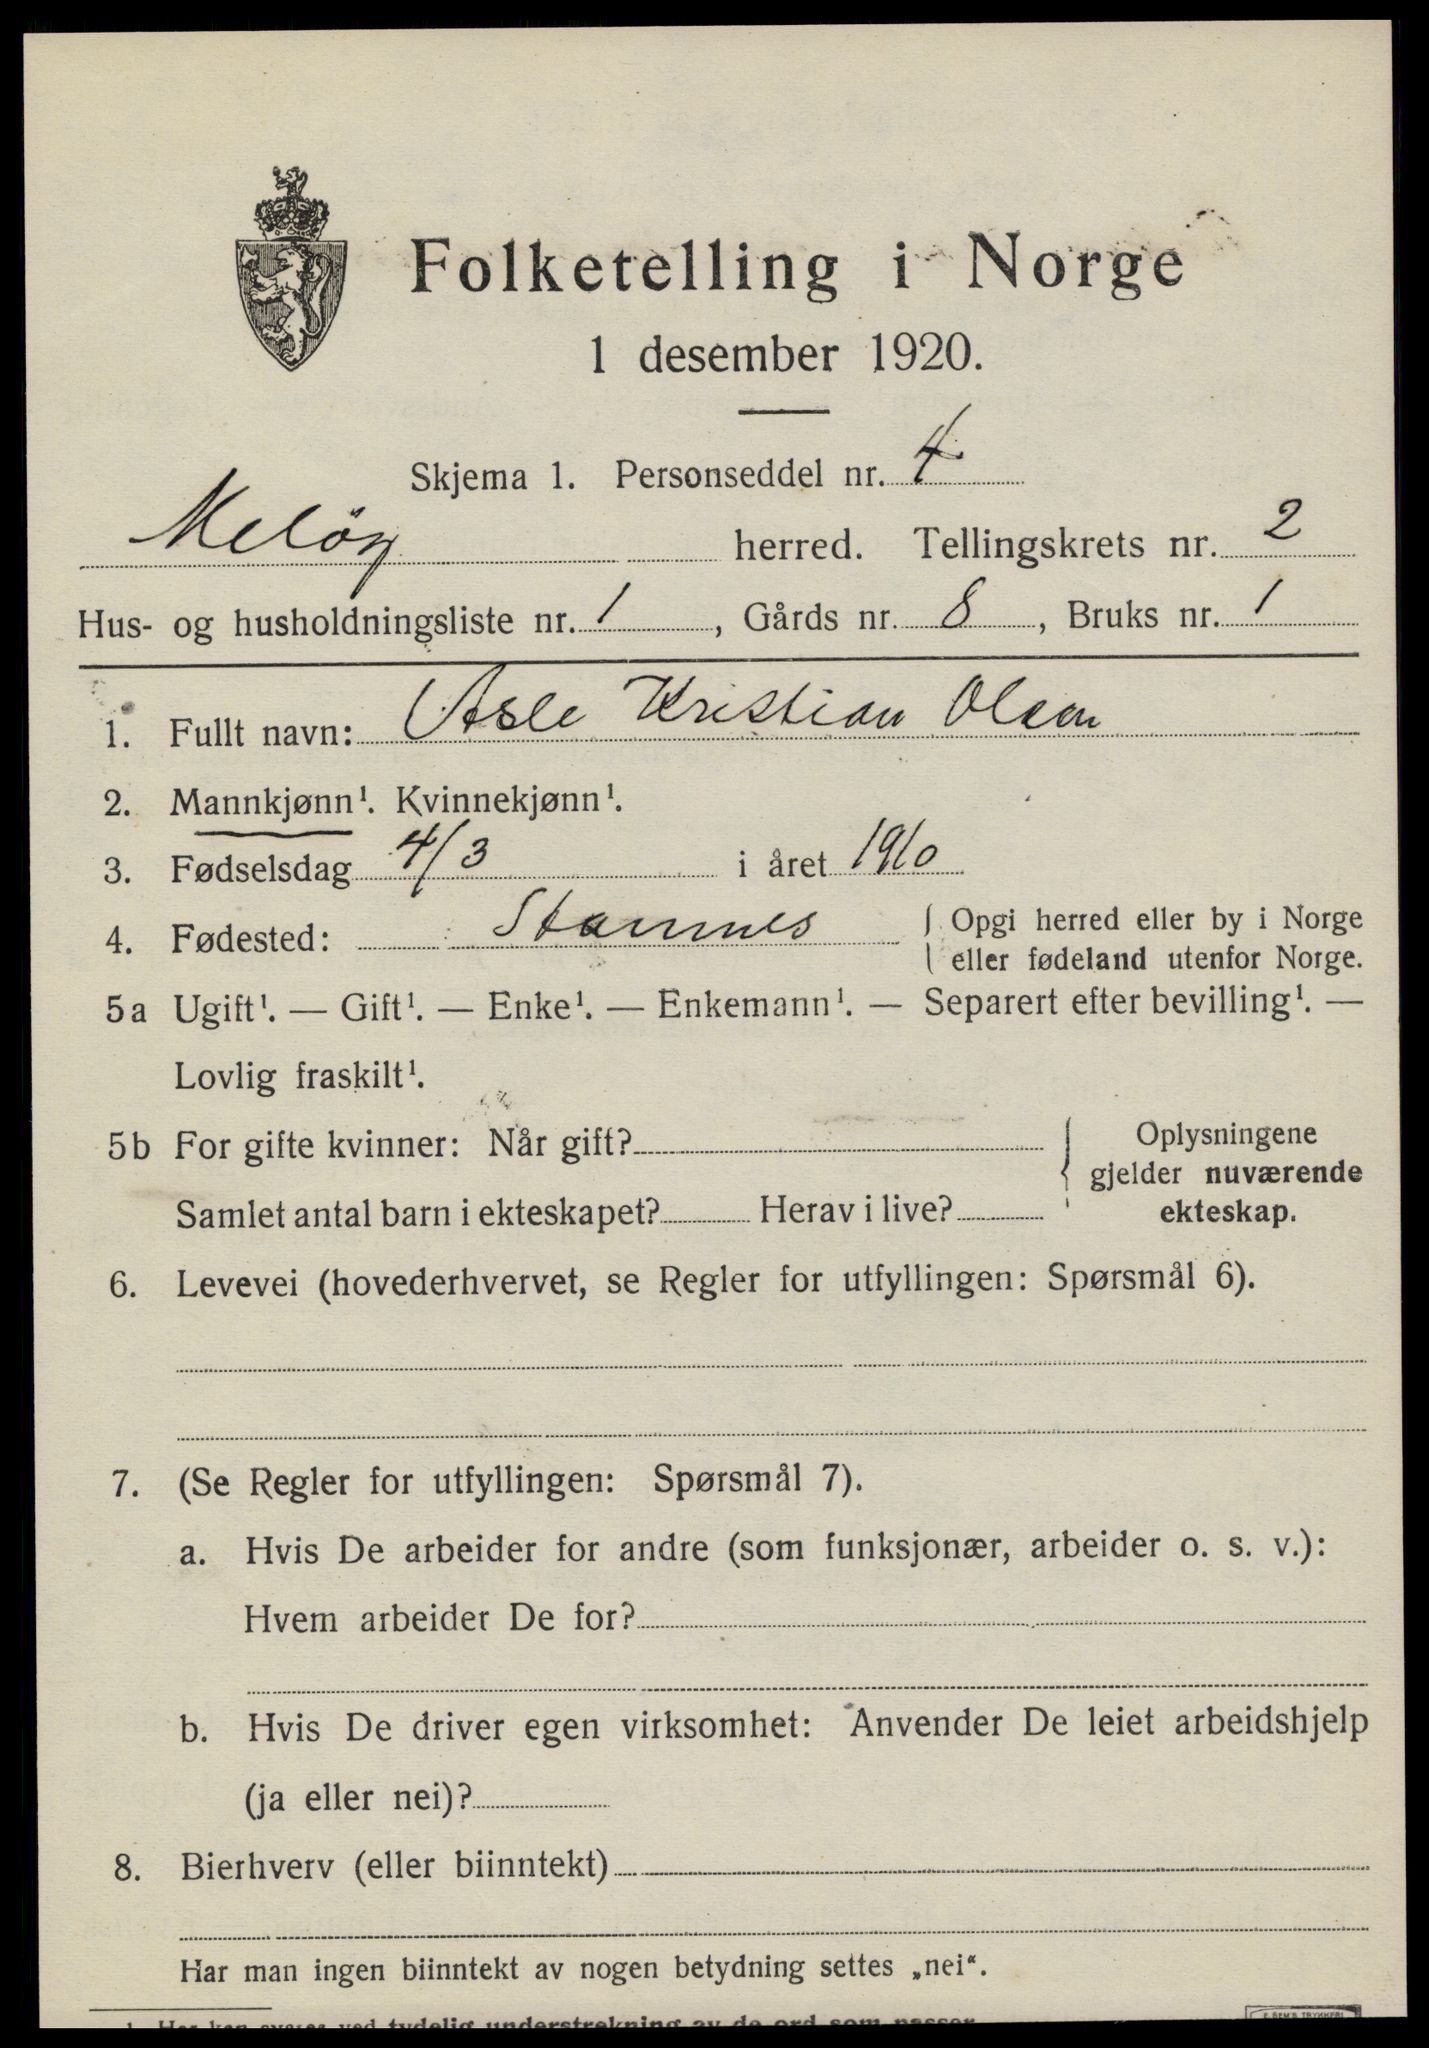 Folketelling i Norge
1 desember 1920.
Skjema 1. Personseddel nr. 4
Meløy herred. Tellingskrets nr. 2
Hus- og husholdningsliste nr. 1, Gårds nr. 8, Bruks nr. 1
1. Fullt navn: Asle Kristian Olsen
2. Mannkjønn¹. Kvinnekjønn¹.
3. Fødselsdag 4/3 i året 1910
4. Fødested: Stamnes { Opgi herred eller by i Norge
eller fødeland utenfor Norge.
5a Ugift¹. — Gift¹. — Enke¹. — Enkemann¹. — Separert efter bevilling¹. —
Lovlig fraskilt¹.
5b For gifte kvinner: Når gift?
Samlet antal barn i ekteskapet? Herav i live?
{ Oplysningene
gjelder nuværende
ekteskap.
6. Levevei (hovederhvervet, se Regler for utfyllingen: Spørsmål 6).
7. (Se Regler for utfyllingen: Spørsmål 7).
a. Hvis De arbeider for andre (som funksjonær, arbeider o. s. v.):
Hvem arbeider De for?
b. Hvis De driver egen virksomhet: Anvender De leiet arbeidshjelp
(ja eller nei)?
8. Bierhverv (eller biinntekt)
Har man ingen biinntekt av nogen betydning settes „nei“.
1 Her kan svares ved tydelig understrekning av de ord som passer.